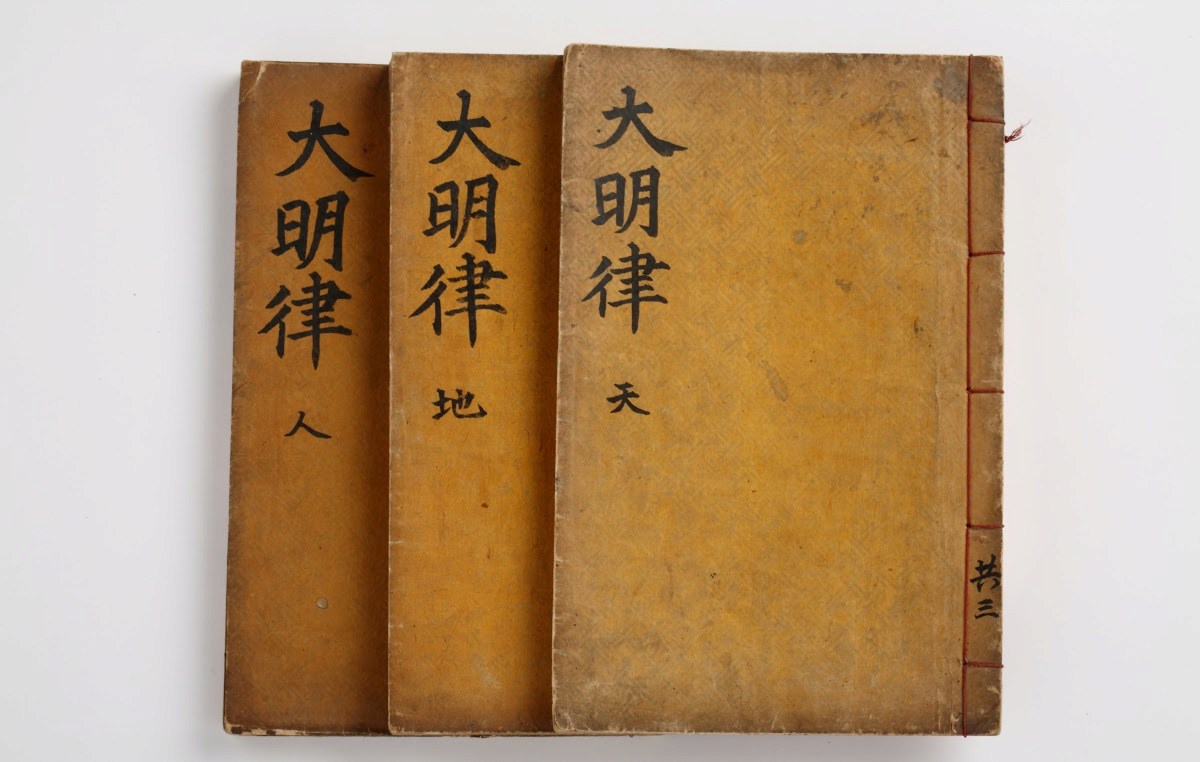 大明律 天
共三
大明律 地
大明律 人